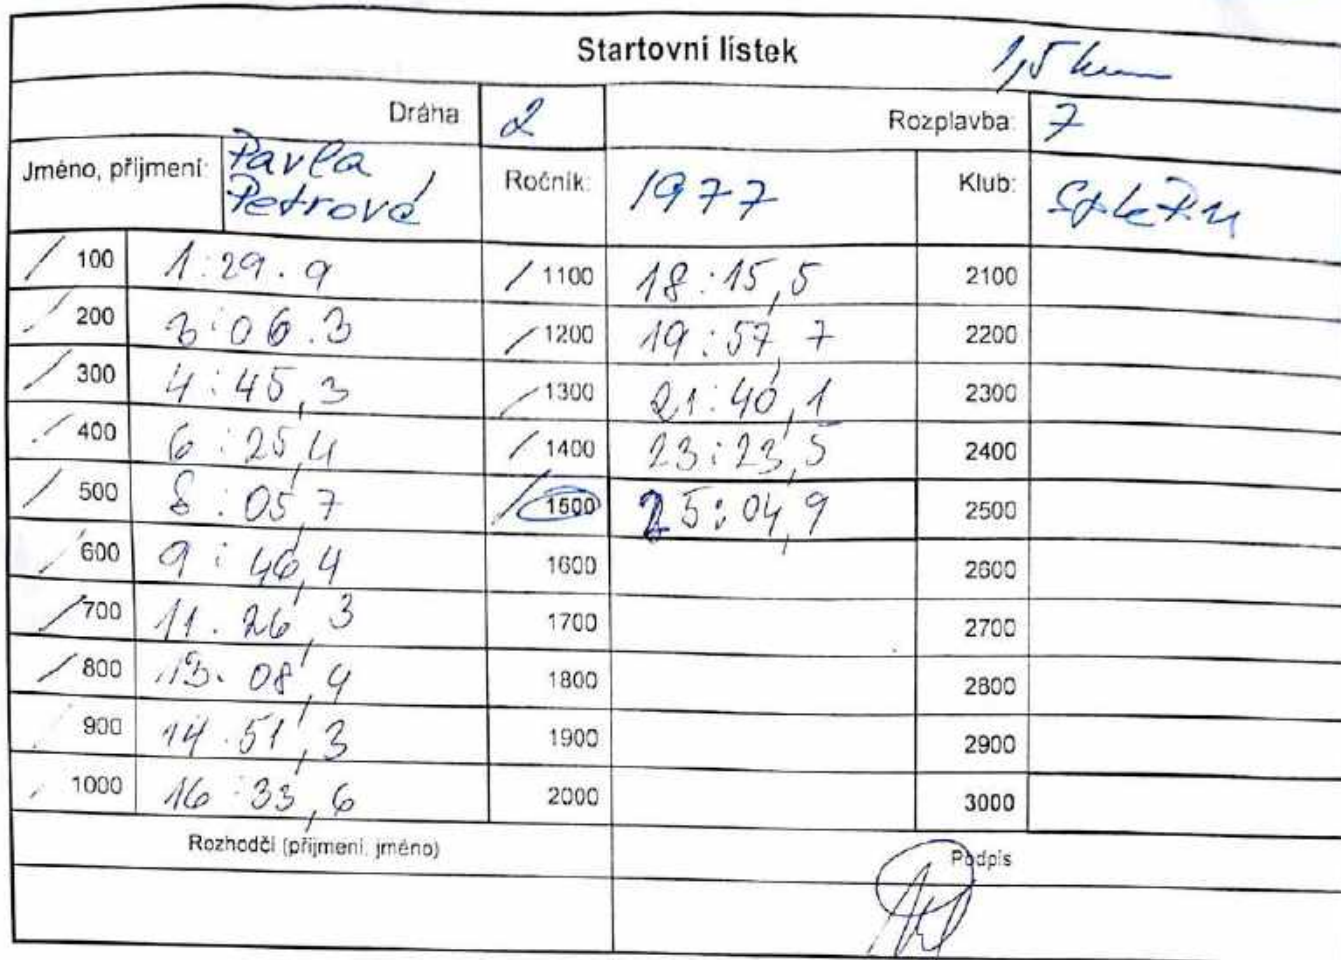 Startovní lístek 1,5 km
Dráha 2 Rozplavba: 7
Jméno, příjmení: Pavla Petrová Ročník: 1977 Klub:
100 1:29.9 1100 18:15,5 2100
200 3:06.3 1200 19:57,7 2200
300 4:45,3 1300 21:40,1 2300
400 6:25,4 1400 23:23,5 2400
500 8:05,7 1500 25:04,9 2500
600 9:46,4 1600 2600
700 11.26,3 1700 2700
800 13.08,4 1800 2800
900 14.51,3 1900 2900
1000 16:33,6 2000 3000
Rozhodčí (příjmení, jméno) Podpis